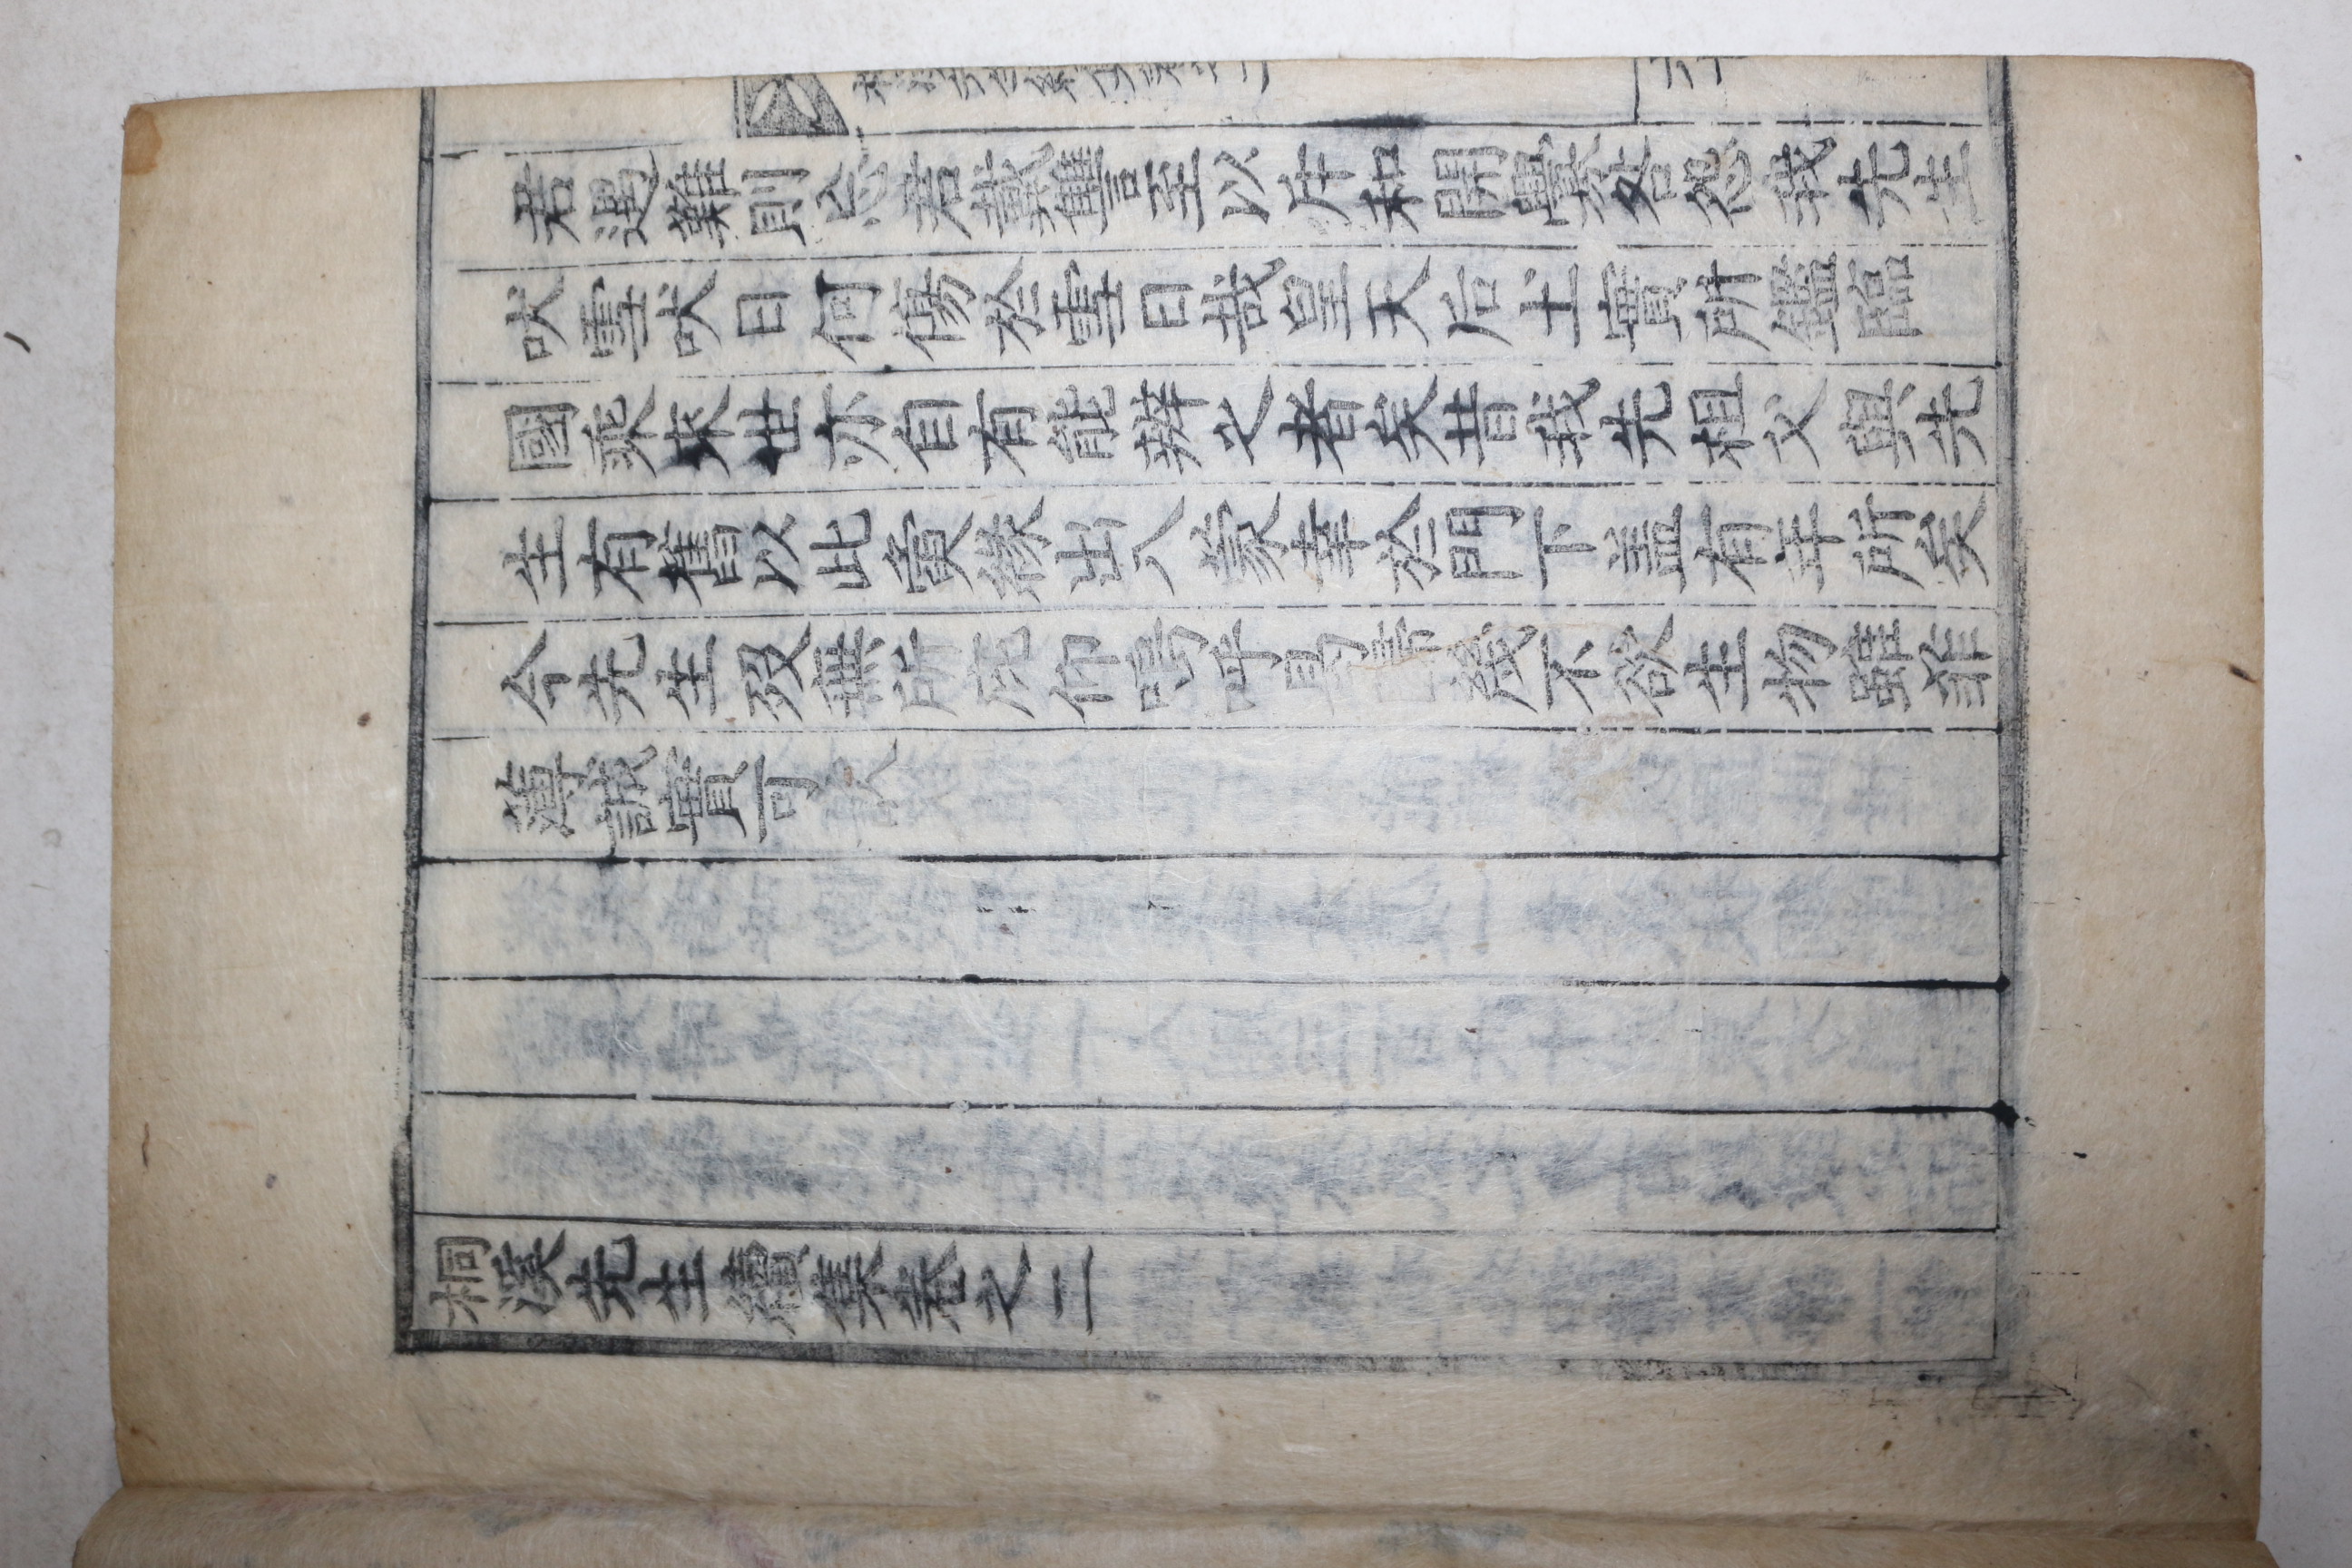 君遇難則忘君戴讐至以斥和開釁咎怨我先生
吠雪吠日何傷於雪日哉皇天后土實所鑑臨
國乘來世亦自有能辨之者矣昔我先祖父與先
生有舊以此夤緣出入蒙幸於門下盖有年所矣
今先生歿無所庇仰嗚呼曷歸幾不欲生物雖菲
薄誠實可歆
桐溪先生續集卷之二